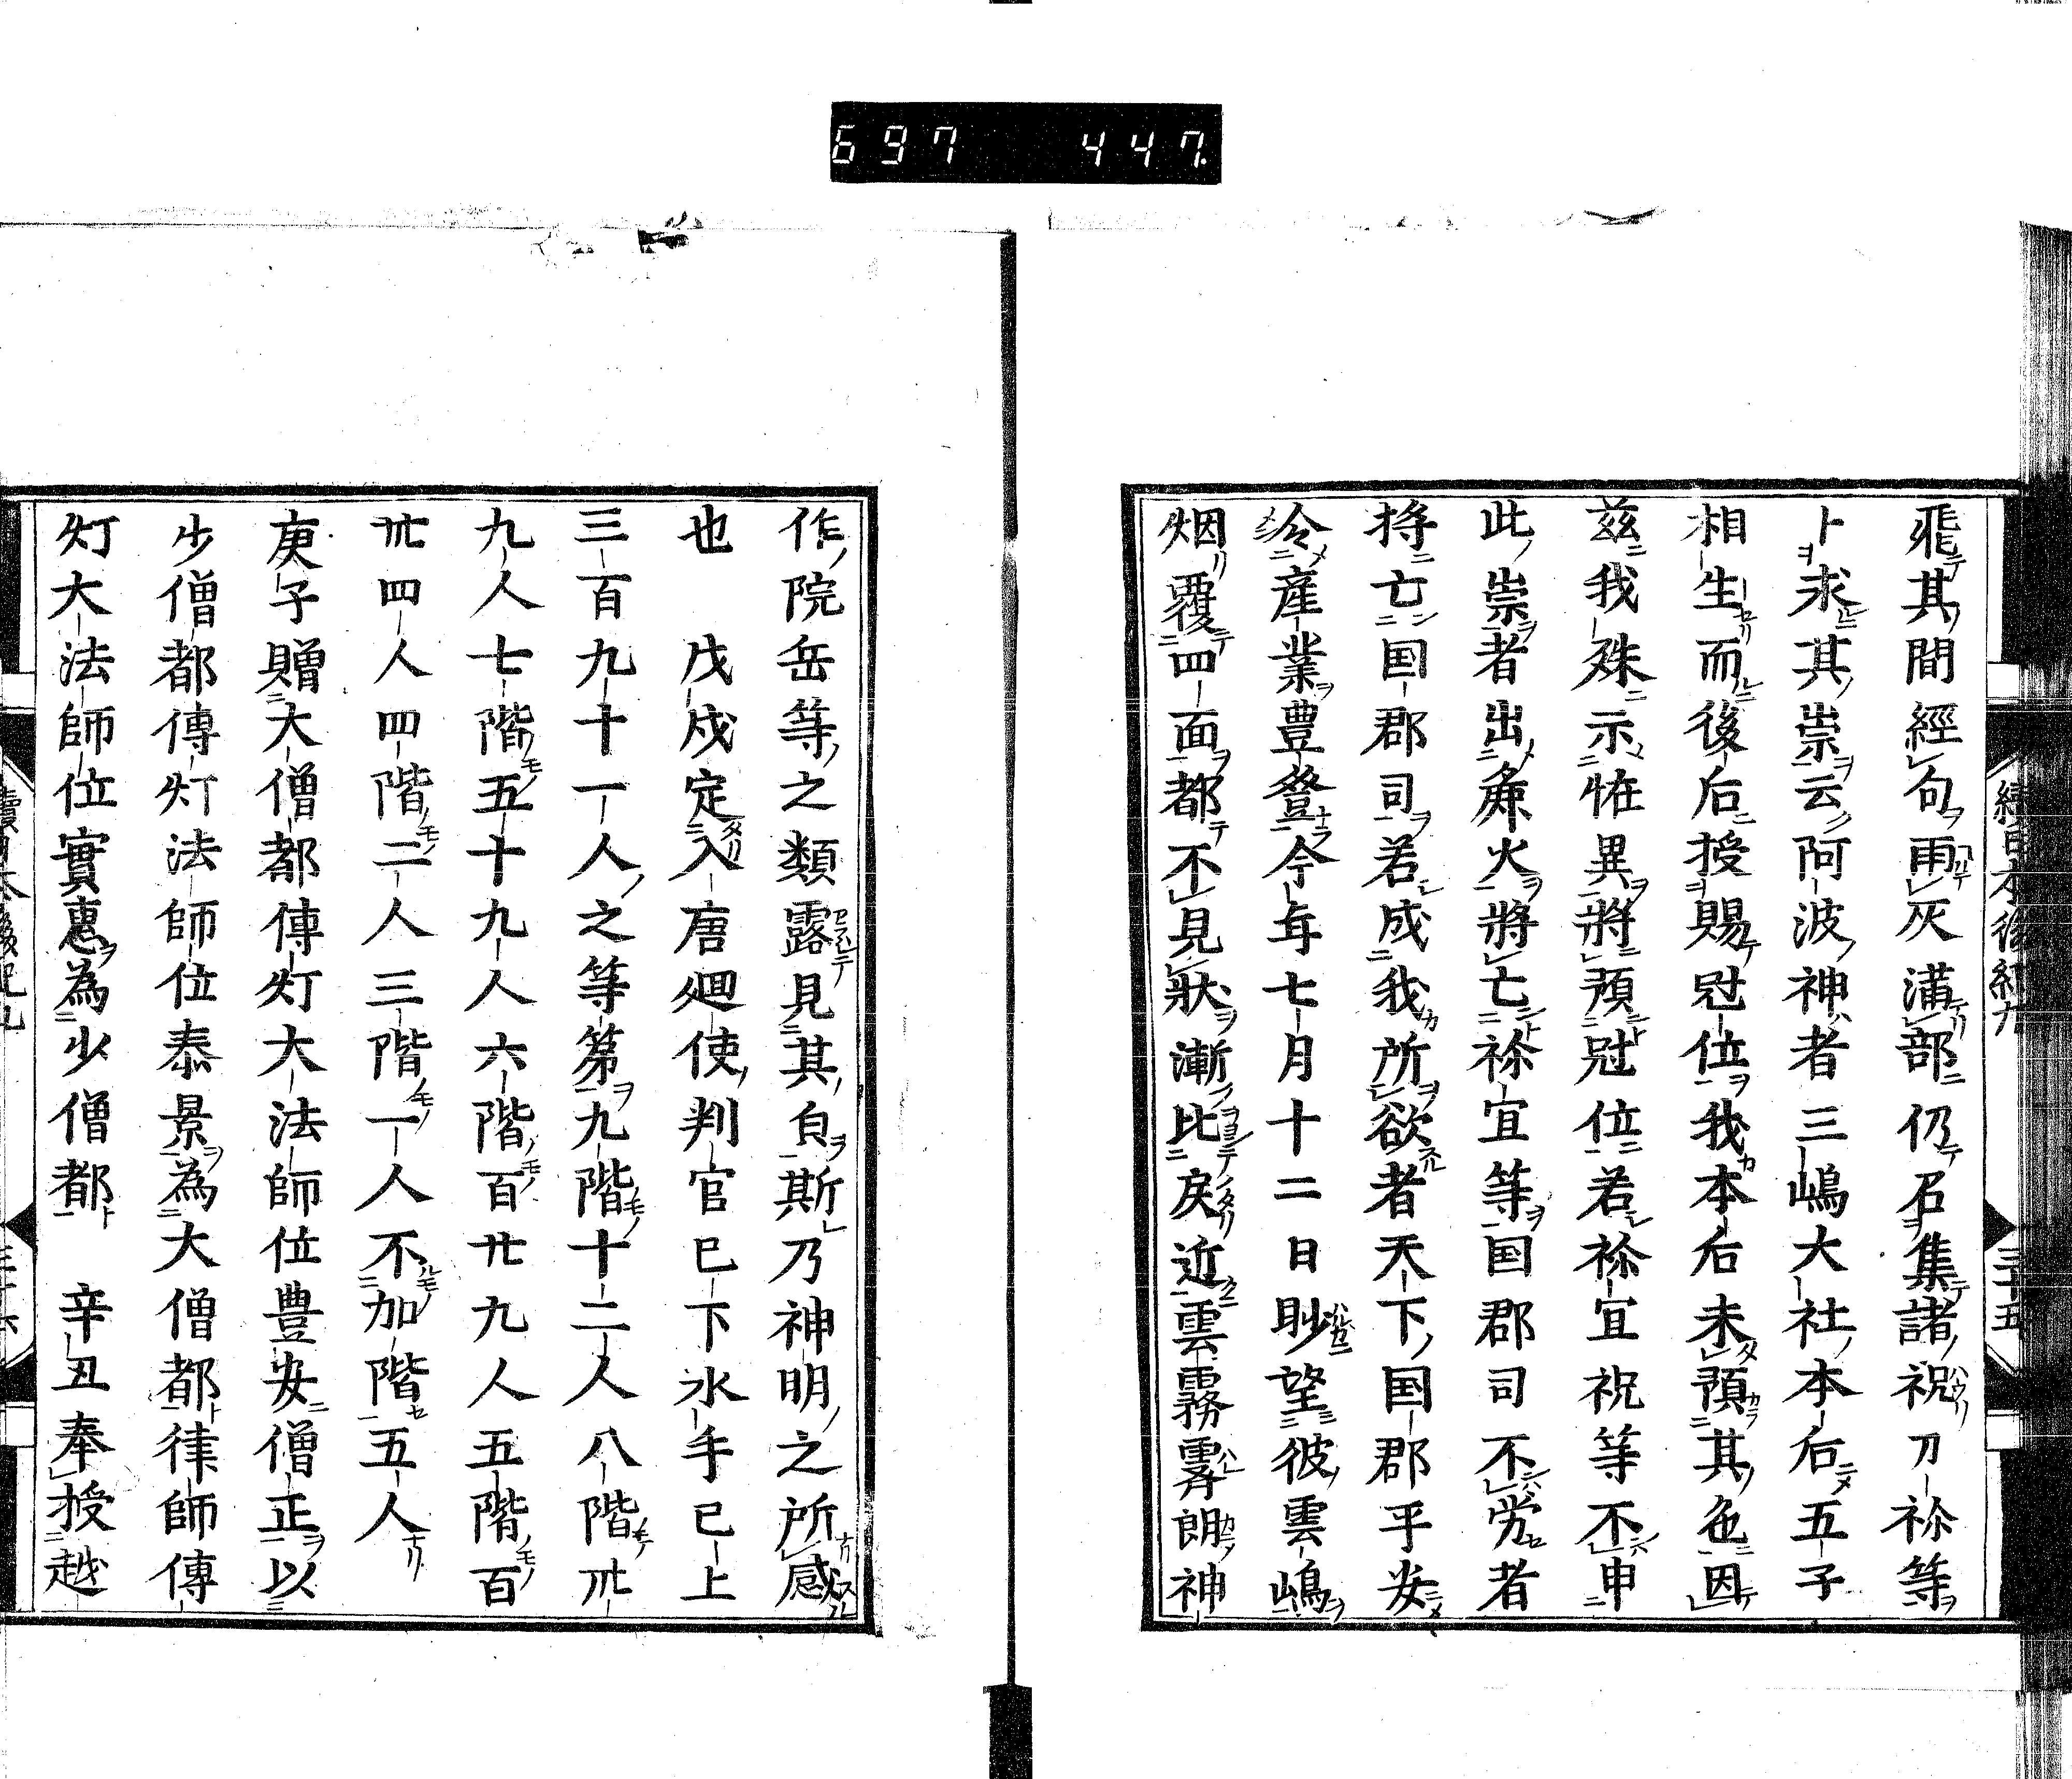 697 447.
續日本後紀九 三十五
飛其間經句雨灰滿部仍召集諸祝刀祢等
卜求其崇云阿波神者三嶋大社本后五子
相生而後后授賜冠位我本后未預其色因
茲我殊示恠異將預冠位若祢宜祝等不申
此崇者出麁火將亡祢宜等国郡司不労者
将亡国郡司若成我所欲者天下国郡平安
令産業豊登今年七月十二日眇望彼雲嶋
烟覆四面都不見狀漸比戾近雲霧霽朗神
作院岳等之類露見其貞斯乃神明之所感
也 戊戌定入唐廻使判官已下水手已上
三百九十一人之等第九階十二人八階卅
九人七階五十九人六階百廿九人五階百
卅四人四階二人三階一人不加階五人
庚子贈大僧都傳灯大法師位豊安僧正以
少僧都傳灯法師位泰景為大僧都律師傳
灯大法師位實惠為少僧都 辛丑奉授越